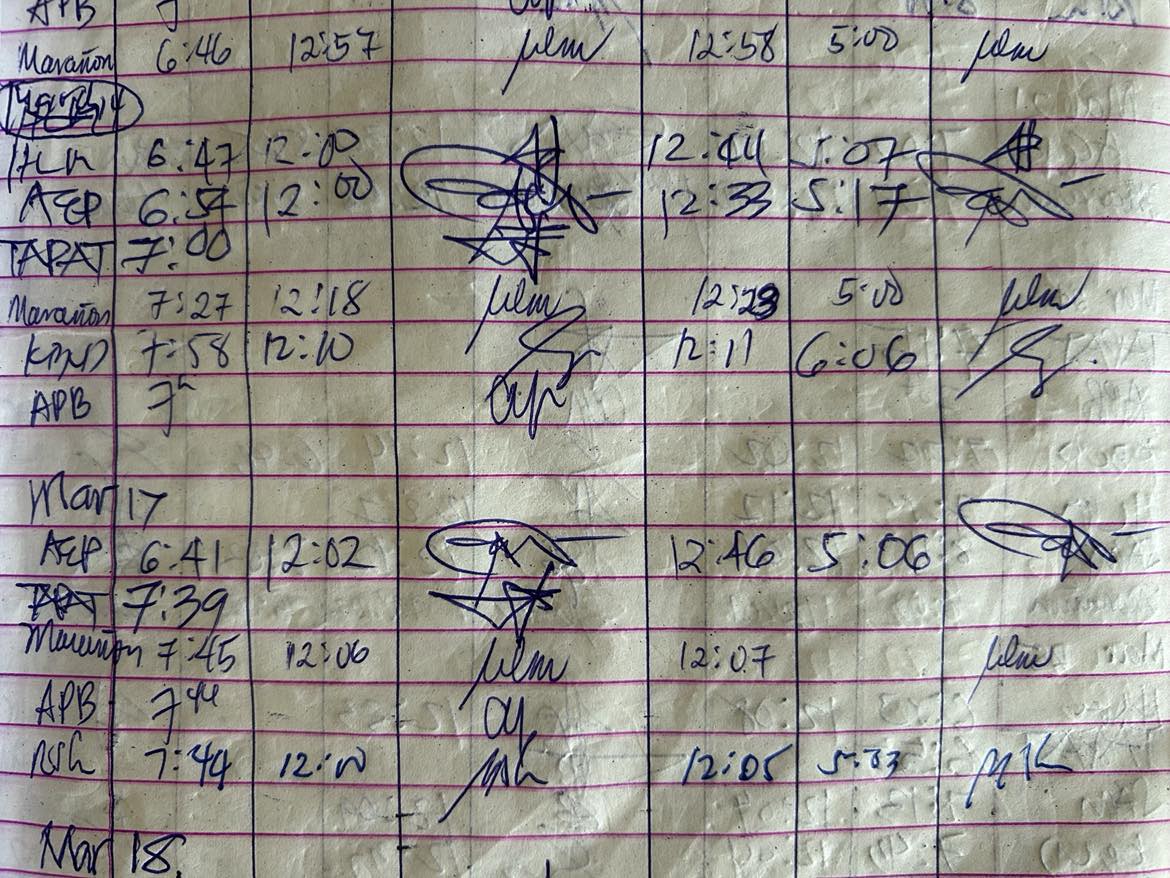 APB
Marañon 6:46 12:57 12:58 5:00
6:47 12:00 12:44 5:07
AEP 6:54 12:00 12:33 5:17
TAPAT 7:00
Marañon 7:27 12:18 12:23 5:00
7:58 12:10 12:11 6:06
APB 7
Mar 17
AEP 6:41 12:02 12:46 5:06
TAPAT 7:39
Marañon 7:45 12:06 12:07
APB 7 44
7:44 12:00 12:05 5:03
Mar 18